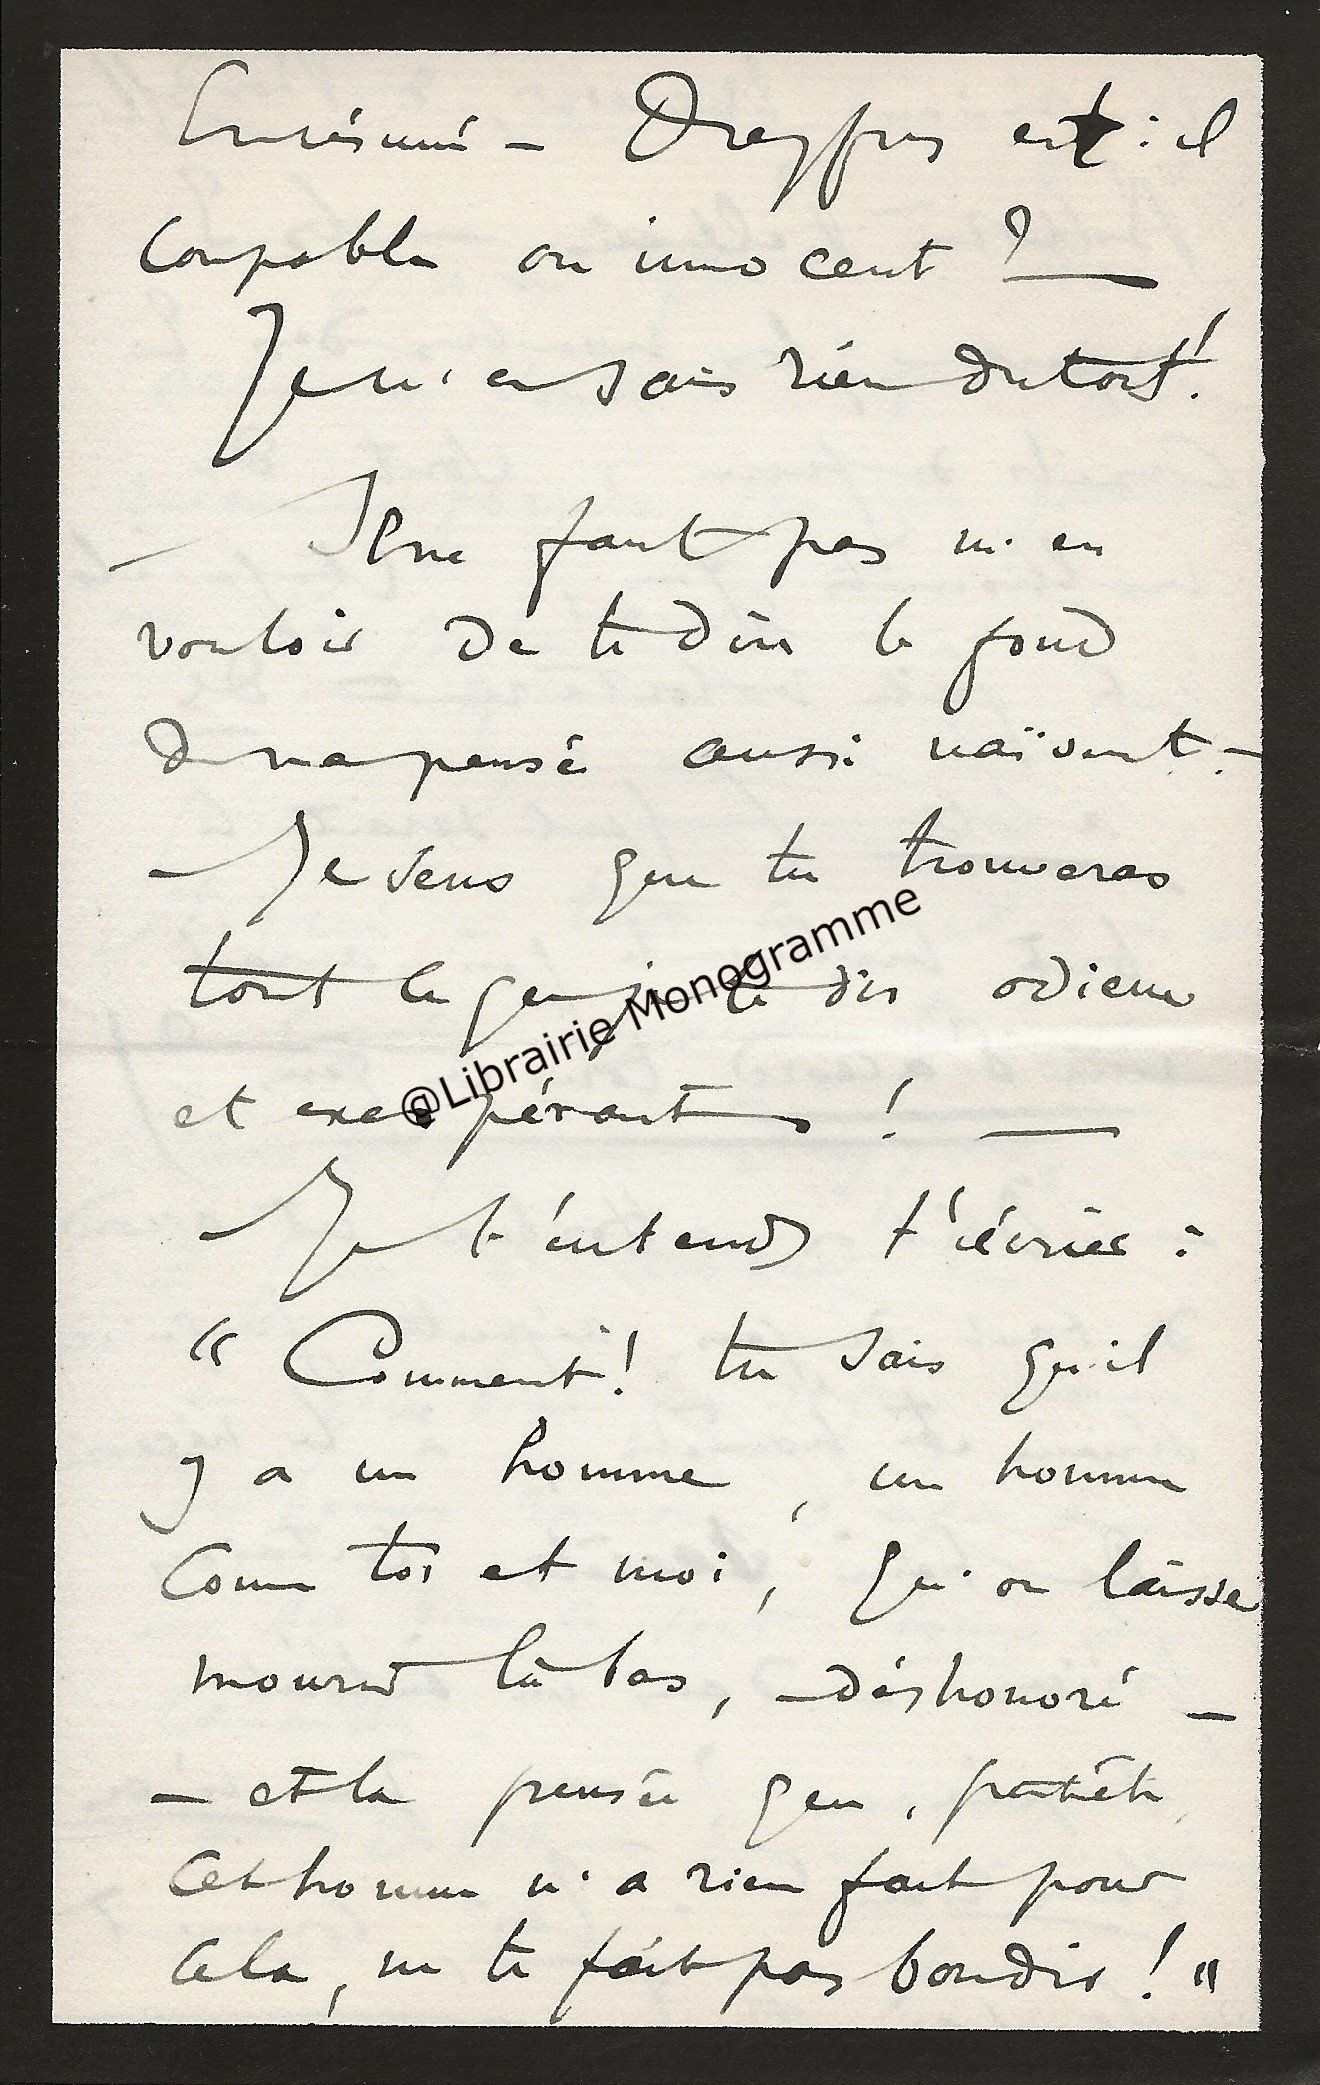 En résumé — Dreyfus est-il
coupable ou innocent ? —
Je n'en sais rien du tout !
— Il ne faut pas m'en
vouloir de te dire le fond
de ma pensée aussi naïvement. —
— Je sens que tu trouveras
tout ce que je te dis odieux
et exaspérant ! —
— Je t'entends t'écrier :
“ Comment ! tu sais qu'il
y a un homme, un homme
comme toi et moi, qu'on laisse
mourir là bas, — déshonoré —
— et la pensée que, peutêtre
cet homme n'a rien fait pour
cela, ne te fait pas bondir ! "
@Librairie Monogramme